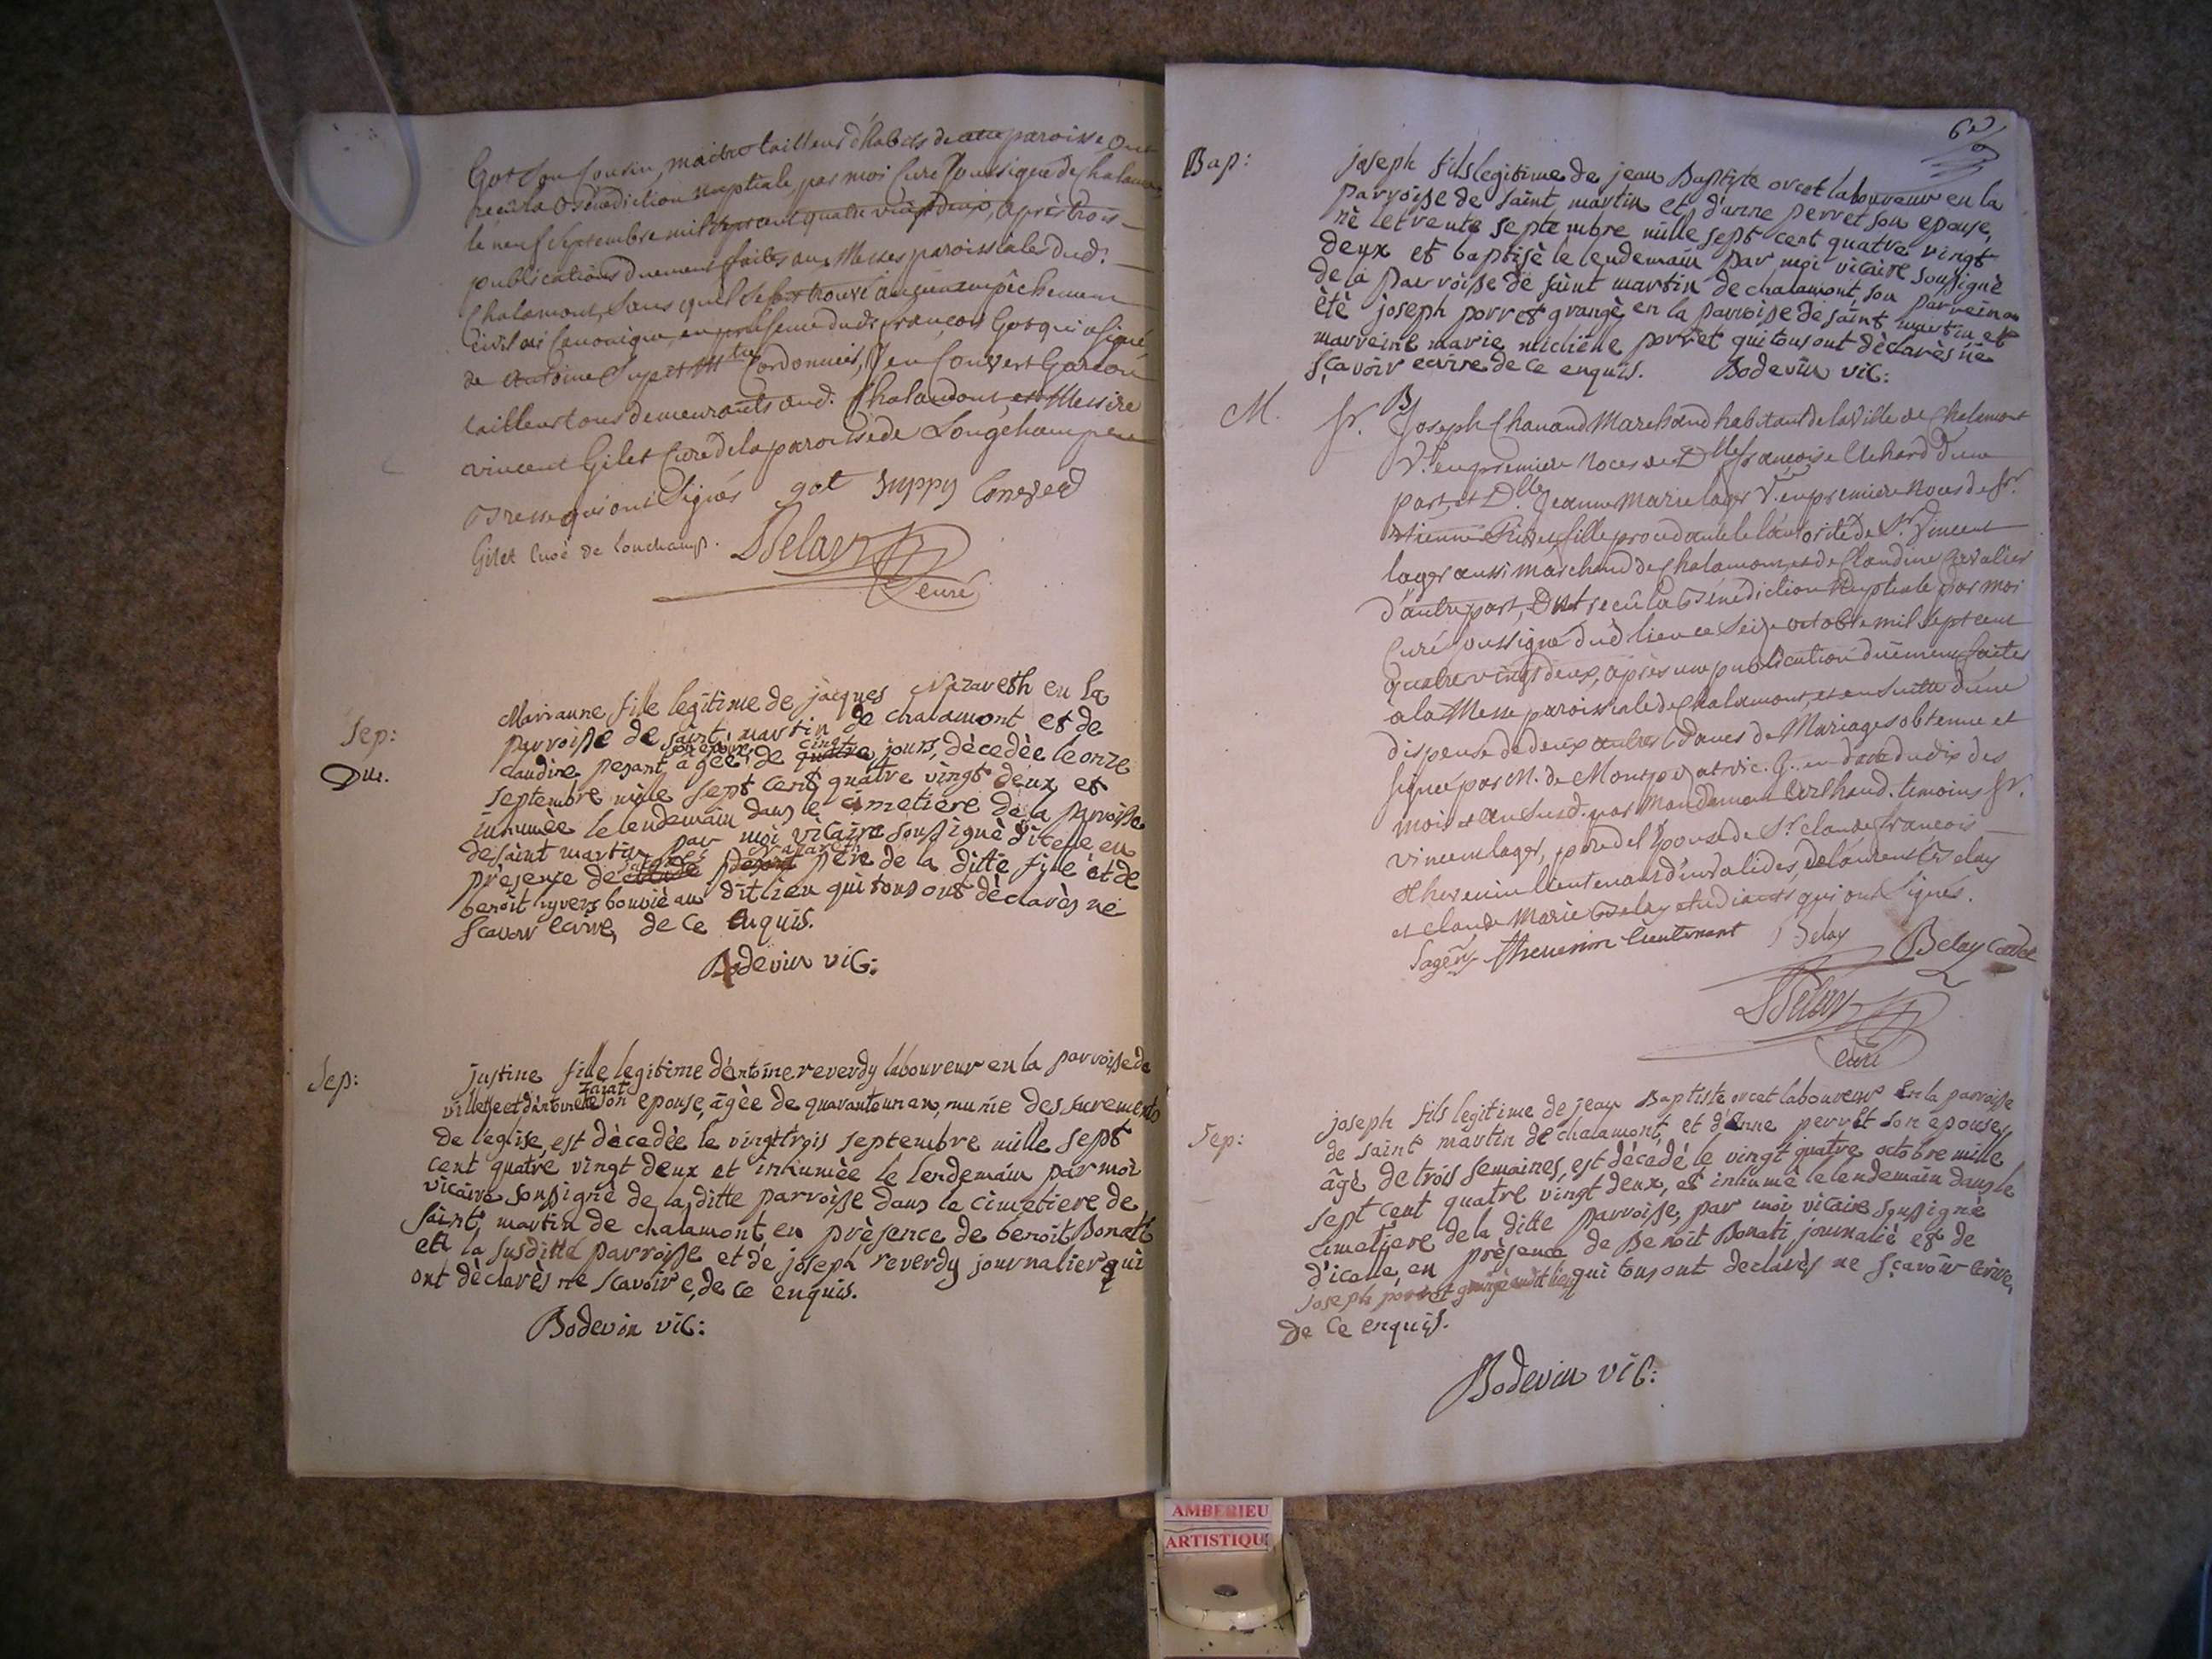 Got son cousin, maitre tailleur d'habits de cette paroisse ont
recû la Bénédiction nuptiale, par moi Curé soussigné de Chalamont,
le neuf Septembre mil sept cent quatre vingt deux, après trois
publications duement faites aux Messes paroissiales dud.
Chalamont, sans qu'il se soit trouvé aucun empêchement
civil ni canonique, en présence dudt. françois Got qui a signé,
de Antoine Cordonnier, Jean Convert Garcon
tailleur tous demeurants aud. Chalamont, et Messire
vincent Gilet Curé de la paroisse de Longchamp en
Bresse qui ont Signés got Juppy Convert
Gilet Curé de Lonchamp. Belay
curé
Sep:
Du.
Marianne fille legitime de jacques Nazareth en la
parroisse de saint martin de chalamont et de
claudine pesant son epouse, âgée de quatre cinq jours, dècedèe le onze
septembre mille sept cent quatre vingt deux et
inhumèe le lendemain dans le cimetiere de la parroisse
de saint martin par moi vicaire soussignè d'icelle, en
prèsence de jacques nazareth père de la ditte fille et de
benoit uyvers bouviè au dit lieu qui tous ont dèclarès ne
scavoir ecrire, de ce enquis.
Bodevin vic:
Sep:
justine fille legitime d'antoine reverdy laboureur en la parroisse de
villette et d'antoinette Zarat son epouse, âgèe de quarante un an, munie des sacrements
de l'eglise, est dècedèe le vingt trois septembre mille sept
cent quatre vingt deux et inhumèe le lendemain par moi
vicaire soussignè de la ditte parroisse dans le cimetiere de
saint martin de chalamont en prèsence de benoit Bonati
en la susditte parroisse et de joseph reverdy journalier qui
ont dèclarès ne scavoir e, de ce enquis.
Bodevin vic:
63
Bap:
joseph fils legitime de jean Baptiste orcet laboureur en la
parroisse de saint martin et d'anne perret son epouse,
nè le trente septembre mille sept cent quatre vingt
deux et baptisè le lendemain par moi vicaire soussignè
de la parroisse de saint martin de chalamont, son parrein a
ètè joseph porret grangè en la parroise de saint martin et
marreine marie michelle porret qui tous ont dèclarès ne
sçavoir ecrire de ce enquis. Bodevin vic:
M.
B
Sr. Joseph Chanand Marchand habitant de la Ville de Chalamont
V. en premiere Noces de Dlle francoise Uchard d'une
part, et Dlle. Jeanne Marie lager V. en premiere Noces de Sr.
Etienne fille procedante de l'autorité de Sr. Vincent
lager aussi marchand de Chalamont et de Claudine Chevalier
d'autre part, Ont recû la Bénédiction Nuptiale par moi
Curé soussigné dud. lieu ce Seize octobre mil sept cent
quatre vingt deux, après une publication duement faites
a la Messe paroissiale de Chalamont, et ensuitte d'une
dispense de deux autres bancs de Mariage obtenue et
signée par M. de Montpopat vic. G. en date du dix des
mois et an susd. par Mandement Cerlhaud. temoins Sr.
Vincent lager, pere de l'Epouse Sr. claude francois
thevenin lieutenant d'invalides, de laurent Belay
et claude Marie Belay etudiants qui ont Signés.
lager thevenin lieutenant Belay Belay Cadet
Belay
curé
Sep:
joseph fils legitime de jean Baptiste orcet laboureur en la parroisse
de saint martin de chalamont, et d'anne perret son epouse,
âgè de trois semaines, est dècedé le vingt quatre octobre mille
sept cent quatre vingt deux, et inhumè le lendemain dans le
cimetiere de la ditte parroise, par moi vicaire soussignè
d'icelle, en prèsence de Benoit Bonati journaliè et de
joseph porret grangè au dit lieu qui tous ont declarès ne sçavoir ecrire,
de ce enquis.
Bodevin vic:
AMBERIEU
ARTISTIQU